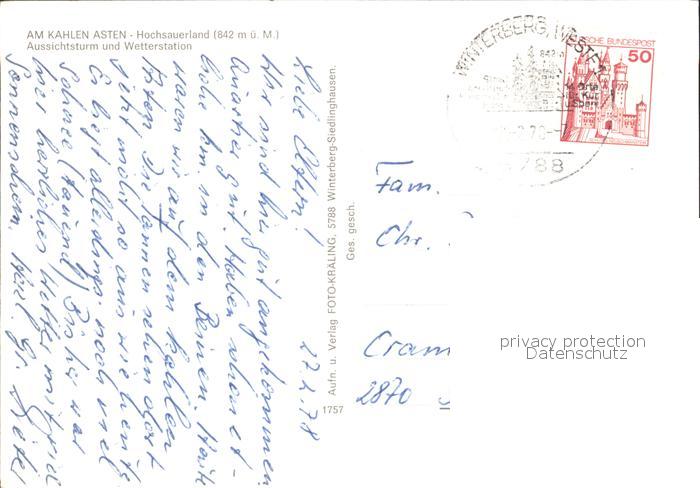 AM KAHLEN ASTEN - Hochsauerland (842 m ü. M.)
Aussichtsturm und Wetterstation
27.2.78
Liebe Eltern!
Wir sind hier gut angekommen
Quartier gut. Haben schon et-
liche km in den Beinen. Heute
waren wir auf dem Kahlen
Asten. Die Tannen sehen dort
jetzt nicht so aus wie heute
Es liegt allerdings noch viel
Schnee (tauend). Bisher war
hier herrliches Wetter mit viel
Sonnenschein. Herzl. Gr.
Aufn. u. Verlag FOTO-KRÄLING, 5788 Winterberg-Siedlinghausen.
Ges. gesch.
1757
WINTERBERG, WESTF
842 m
5788
DEUTSCHE BUNDESPOST
50
Fam.
Chr.
Cram
2870
privacy protection
Datenschutz